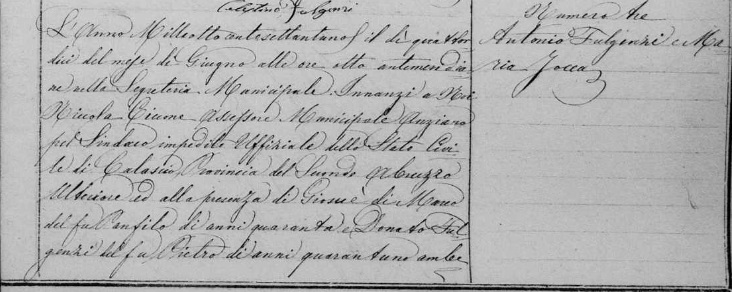 Celestino Fulgenzi
L'Anno Milleottocentosettantanove il dì quattor
dici del mese di Giugno alle ore otto antemeridia
ne nella Segreteria Municipale. Innanzi a Noi
Nicola Ciume Assessore Municipale Anziano
pel Sindaco impedito Uffiziale dello Stato Civi
le di Calascio Provincia del Secondo Abruzzo
Ulteriore ed alla presenza di Giosuè di Marco
del fu Panfilo di anni quaranta e Donato Ful
genzi del fu Pietro di anni quarantuno ambe
Numero tre
Antonio Fulgenzi e Ma
ria Jocca